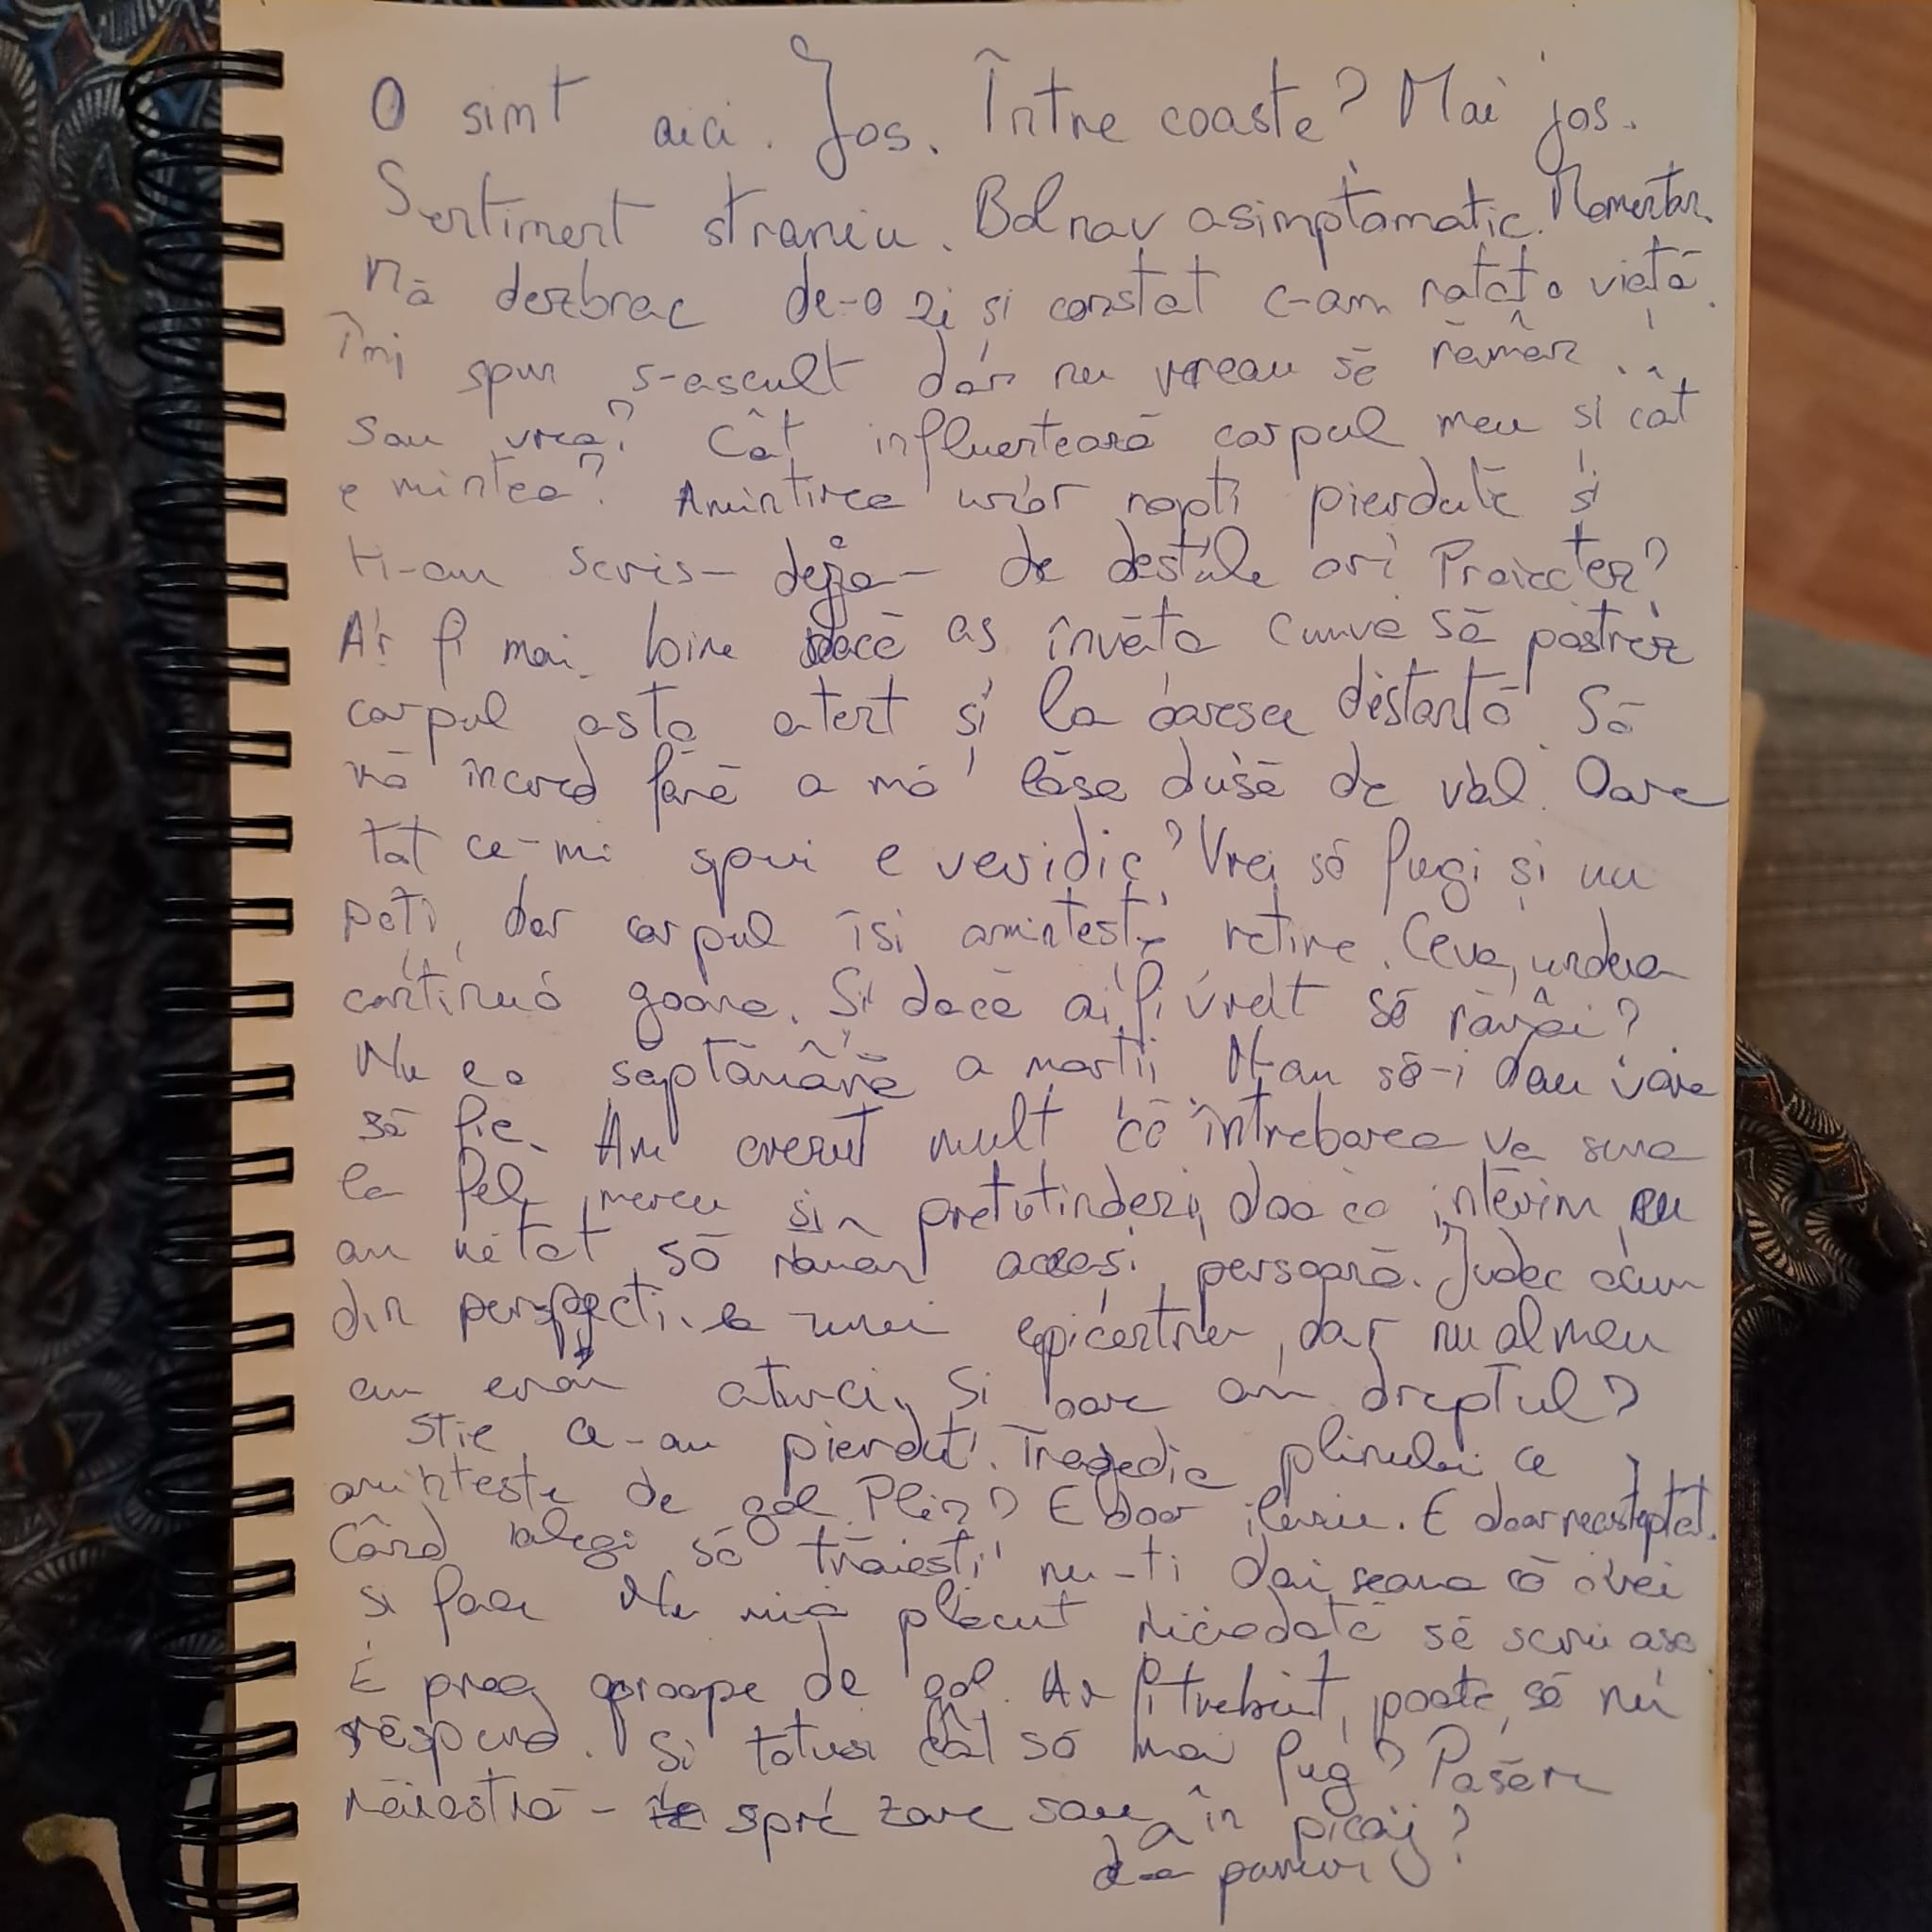 O simt aici. Jos. Între coaste? Mai jos.
Sentiment straniu. Bolnav asimptomatic. Momentan.
Mă dezbrac de-o zi și constat c-am ratat o viață.
Îmi spun s-ascult dar nu vreau să rămân.
Sau vrea? Cât influențează corpul meu și cât
e mintea? Amintirea unor nopți pierdute și
ți-am scris - deja - de destule ori Proiectez?
Ar fi mai bine dacă aș învăța cumva să păstrez
corpul ăsta atent și la oarece distanță. Să
mă încred fără a mă lăsa dusă de val. Oare
tot ce-mi spui e veridic? Vrei să fugi și nu
poți, dar corpul își amintește, reține. Ceva, undeva
continuă goana. Și dacă ai fi vrut să rămâi?
Nu e o săptămână a morții. N-am să-i dau voie
să fie. Am crezut mult că întrebarea va suna
la fel, mereu și-n pretutindeni, doar că intervin eu
am uitat să rămân aceeași persoană. Judec acum
din perspectiva unui epicentru, dar nu al meu
cum eram atunci. Și oare am dreptul?
Știe ce-am pierdut. Tragedia plinului ce
amintește de gol. Plin? E doar iluzie. E doar neașteptat.
Când alegi să trăiești nu-ți dai seama că o vei
și face. Nu mi-a plăcut niciodată să scriu așa.
E prea aproape de gol. Ar fi trebuit, poate, să nu
răspund. Și totuși cât să mai fug? Pasăre
măiastră - spre zare sau în picaj?